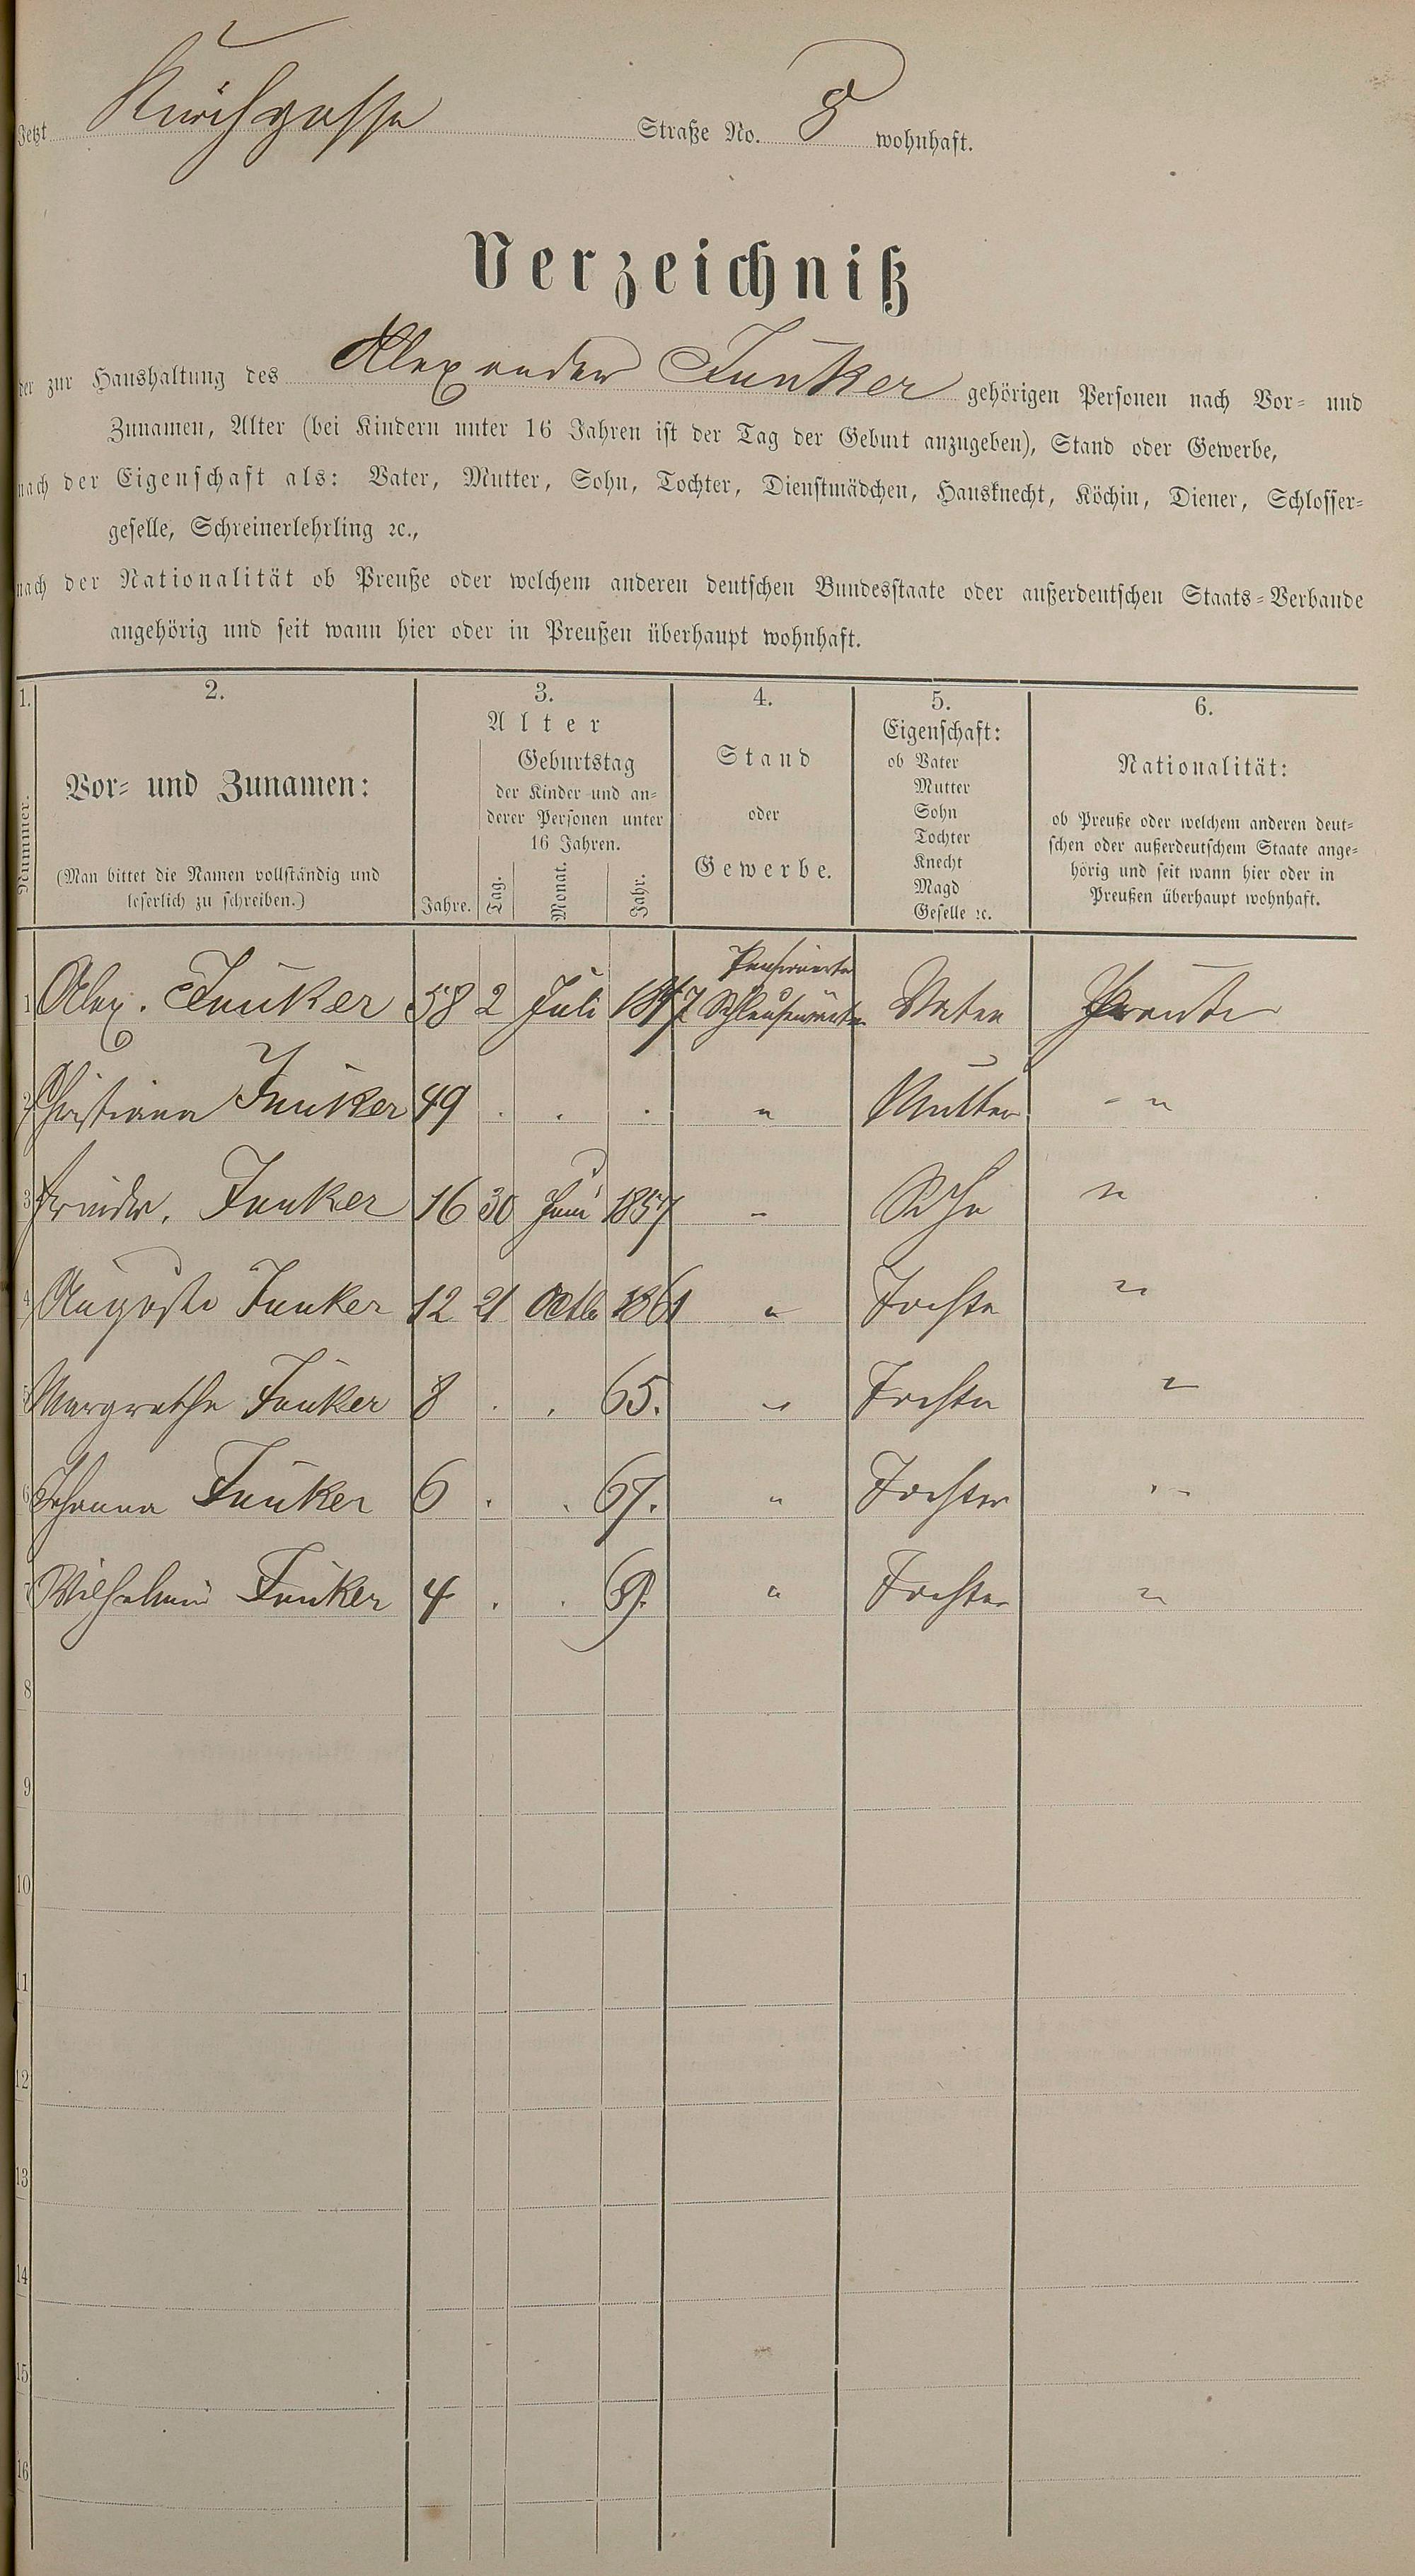 Jetzt Kirchgasse Straße No. 8 wohnhaft.
Verzeichniß
der zur Haushaltung des Alexander Junker gehörigen Personen nach Vor- und
Zunamen, Alter (bei Kindern unter 16 Jahren ist der Tag der Geburt anzugeben), Stand oder Gewerbe,
nach der Eigenschaft als: Vater, Mutter, Sohn, Tochter, Dienstmädchen, Hausknecht, Köchin, Diener, Schlosser-
geselle, Schreinerlehrling ꝛc.,
nach der Nationalität ob Preuße oder welchem anderen deutschen Bundesstaate oder außerdeutschen Staats-Verbande
angehörig und seit wann hier oder in Preußen überhaupt wohnhaft.
1. 2. 3. 4. 5. 6.
Nummer.
Vor- und Zunamen:
(Man bittet die Namen vollständig und
leserlich zu schreiben.)
Alter
Jahre.
Geburtstag
der Kinder und an-
derer Personen unter
16 Jahren.
Tag. Monat. Jahr.
Stand
oder
Gewerbe.
Eigenschaft:
ob Vater
Mutter
Sohn
Tochter
Knecht
Magd
Geselle ꝛc.
Nationalität:
ob Preuße oder welchem anderen deut-
schen oder außerdeutschem Staate ange-
hörig und seit wann hier oder in
Preußen überhaupt wohnhaft.
1 Alex. Junker 58 2 Juli Vater Preuße
2 Christiana Junker 49 . . . " Mutter - "
3 Friedr. Junker 16 30 Juni 1857 - Sohn "
4 Auguste Junker 12 21 Octb 1861 " Tochte "
5 Margrethe Junker 8 . . 65. " Tochter "
6 Johanna Junker 6 . . 67. " Tochter "
7 Wilhelmine Junker 4 . . 69. " Tochter "
8
9
10
11
12
13
14
15
16